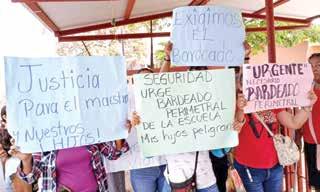 Exigimos
El
Bardeado
Justicia
Para el maestro
y Nuestros
HIJOS!
SEGURIDAD
URGE
BARDEADO
PERIMETRAL
DE LA ESCUELA
Mis hijos peligran
"URGENTE"
BARDEADO
PERIMETRAL